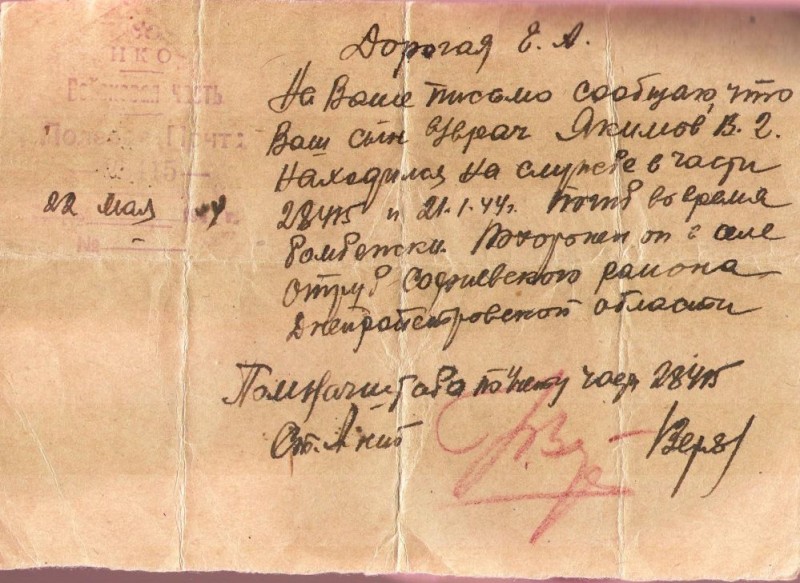 НКО
Войсковая часть
Полевая Почт:
22 мая 44
№
Дорогая Е. А.
На Ваше письмо сообщаю, что
Ваш сын в/врач Якимов В. Г.
находился на службе в части
28415 и 21.1.44г. Погиб во время
бомбежки. Похоронен он в селе
Отруб Софиевского района
Днепропетровской области
ПомНачштаба по части 28415
Ст. Л-нт